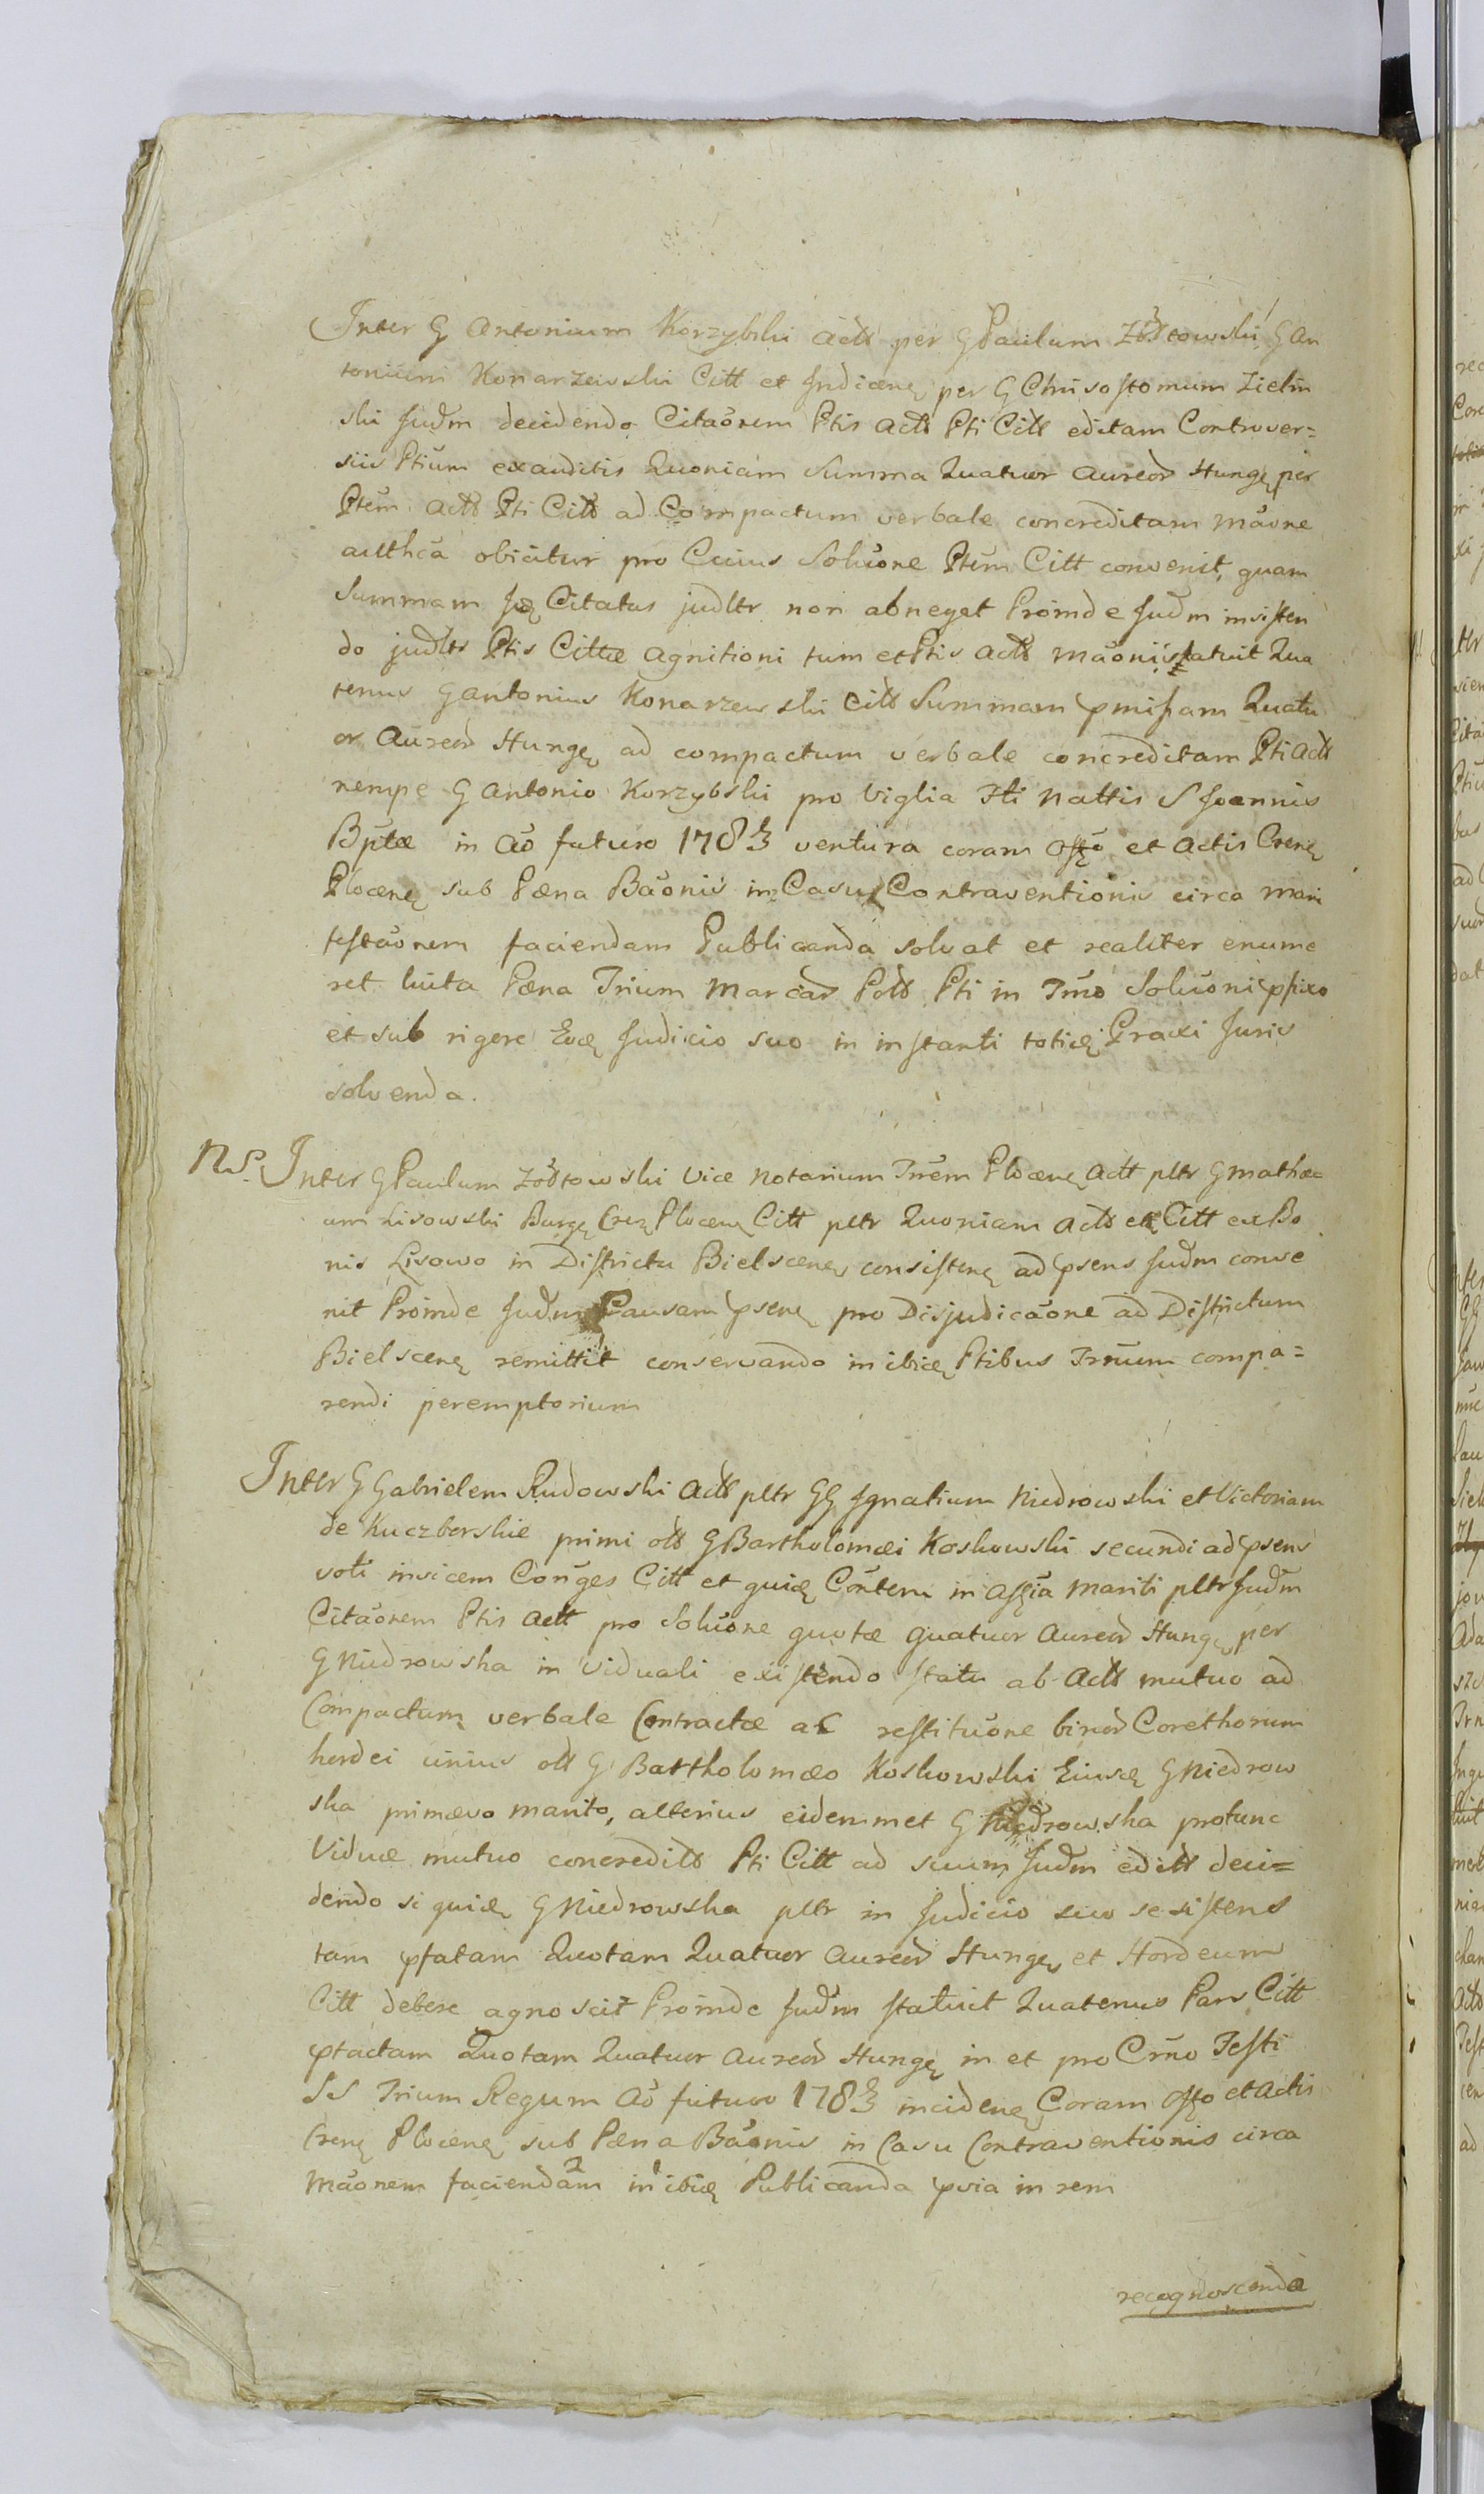 Inter G Antonium Korzybski Actt per G Paulum Żółtowski G An
tonium Konarzewski Citt et Indicenę per G Chrisostomum Zielin
ski Judm decidendo Citaōnem Ptis Actt Pti Citt editam Controver=
siis Ptium exauditis Quoniam Summa Quatuor Aureor Hungę per
Ptem Actt Pti Citt ad Compactum verbale concreditam māone
authca obicitur pro Cuius Soluōne Ptem Citt convenit, quam
Summam Citatus judltr non abneget Proinde Judm insisten
do judltr Ptis Cittæ agnitioni tum et Ptis Actt māonis statuit Qua
tenus G Antonius Konarzewski Citt Summam pmissam Quatu
or Aureor Hungę ad compactum verbale concreditam Pti Actt
nempe G Antonio Korzybski pro Viglia Fti Nattis S Joannis
Bptæ in Aō futuro 1783 ventura coram Offo et Actis Crenę
Plocenę sub Pæna Bāonis in Casu Contraventionis circa mani
festāonem faciendam Publicanda solvat et realiter enume
ret luita Pæna Trium Marcar Poltt Pti in Tmō Soluōni pfixo
et sub rigore Eoę Judicio suo in instanti totię Praxi Juris
solvenda.
NS. Inter G Paulum Żółtowski Vice Notarium Trrem Plocenę Actt pltr G Mathæ
um Lisowski Burgę Crez Plocenę Citt pltr Quoniam Actt Citt ex Bo
nis Lisowo in Districtu Bielscenę consistenę ad psens Judm conve
nit Proinde Judm Causam psenę pro Disjudicāone ad Districtum
Bielscenę remittit conservando in ibię Ptibus Trnum compa=
rendi peremptorium
Inter G Gabrielem Rudowski Actt pltr GG Ignatium Niedrowski et Victoriam
de Kuczborskie primi olt G Bartholomæi Koskowski secundi ad psens
voti invicem Conges Citt et quię Contem in Assia Mariti pltr Judm
Citaōnem Ptis Actt pro Soluōne quotæ quatuor Aureor Hungę per
G Niedrowska in viduali existendo statu ab Actt mutuo ad
Compactum verbale Contractæ ac restituōne binor Corethorum
hordei unius olt G Bartholomæo Koskowski Eiusę G Niedrow
ska primævo marito, alterius eidemmet G Niedrowska protunc
Viduæ mutuo concredits Pti Citt ad suum Judm editt deci=
dendo si quię G Niedrowska pltr in Judicio suo se sistens
tam pfatam Quotam Quatuor Aureor Hungę et Hordeum
Citt debere agnoscit Proinde Judm statuit Quatenus Pars Citt
ptactam Quotam Quatuor Aureor Hungę in et pro Crno Festi
SS Trium Regum Aō futuro 1783 incidenę Coram Offo et Actis
Crenę Plocenę sub Pæna Bāonis in Casu Contraventionis circa
Māonem faciendam in ibię Publicanda pvia in rem
recognoscenda